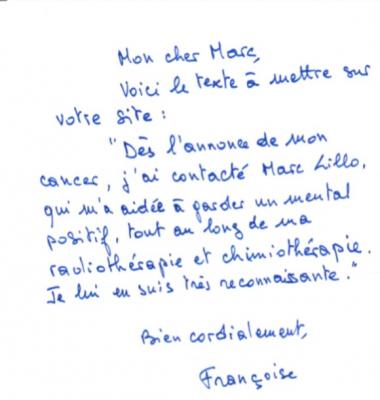 Mon cher Marc,
Voici le texte à mettre sur
votre site :
"Dès l'annonce de mon
cancer, j'ai contacté Marc Lillo,
qui m'a aidée à garder un mental
positif, tout au long de ma
radiothérapie et chimiothérapie.
Je lui en suis très reconnaissante."
Bien cordialement,
Françoise